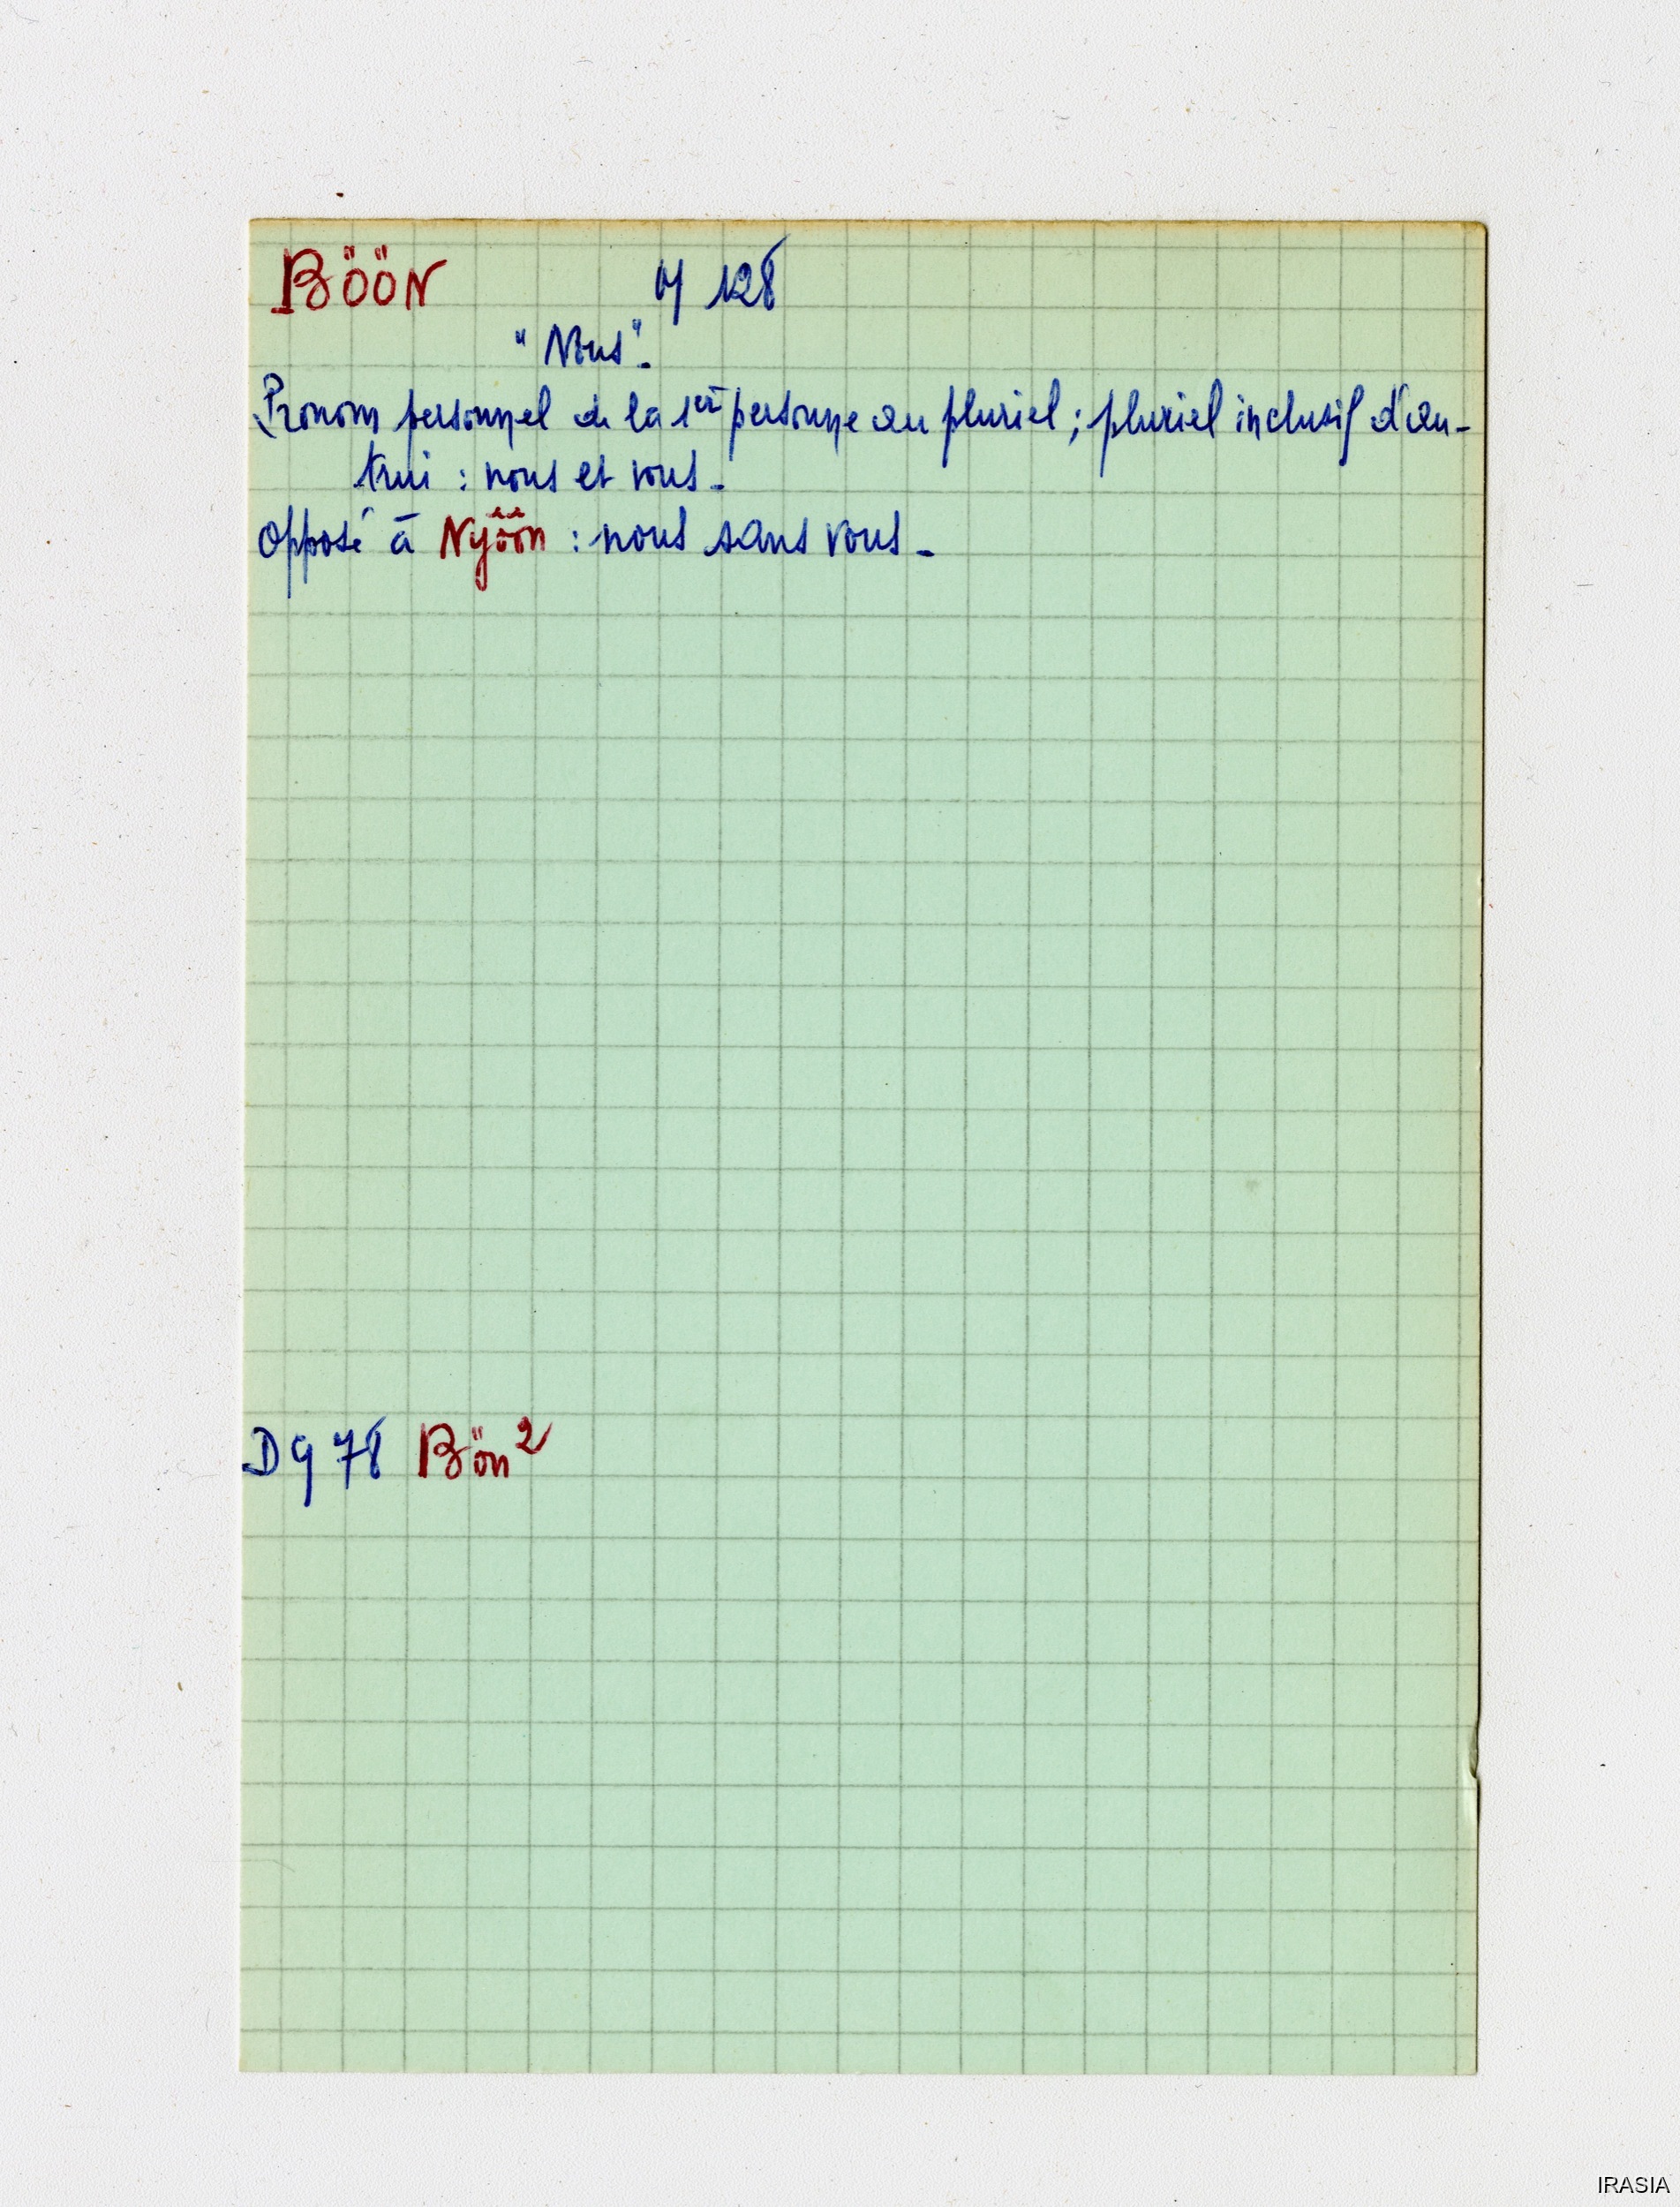 BÖÖN M 128
"Nous".
Pronom personnel de la 1er personne au pluriel ; pluriel inclusif d'au-
trui : nous et vous.
Opposé à Nyöön : nous sans vous.
D 9 78 Bön²
IRASIA